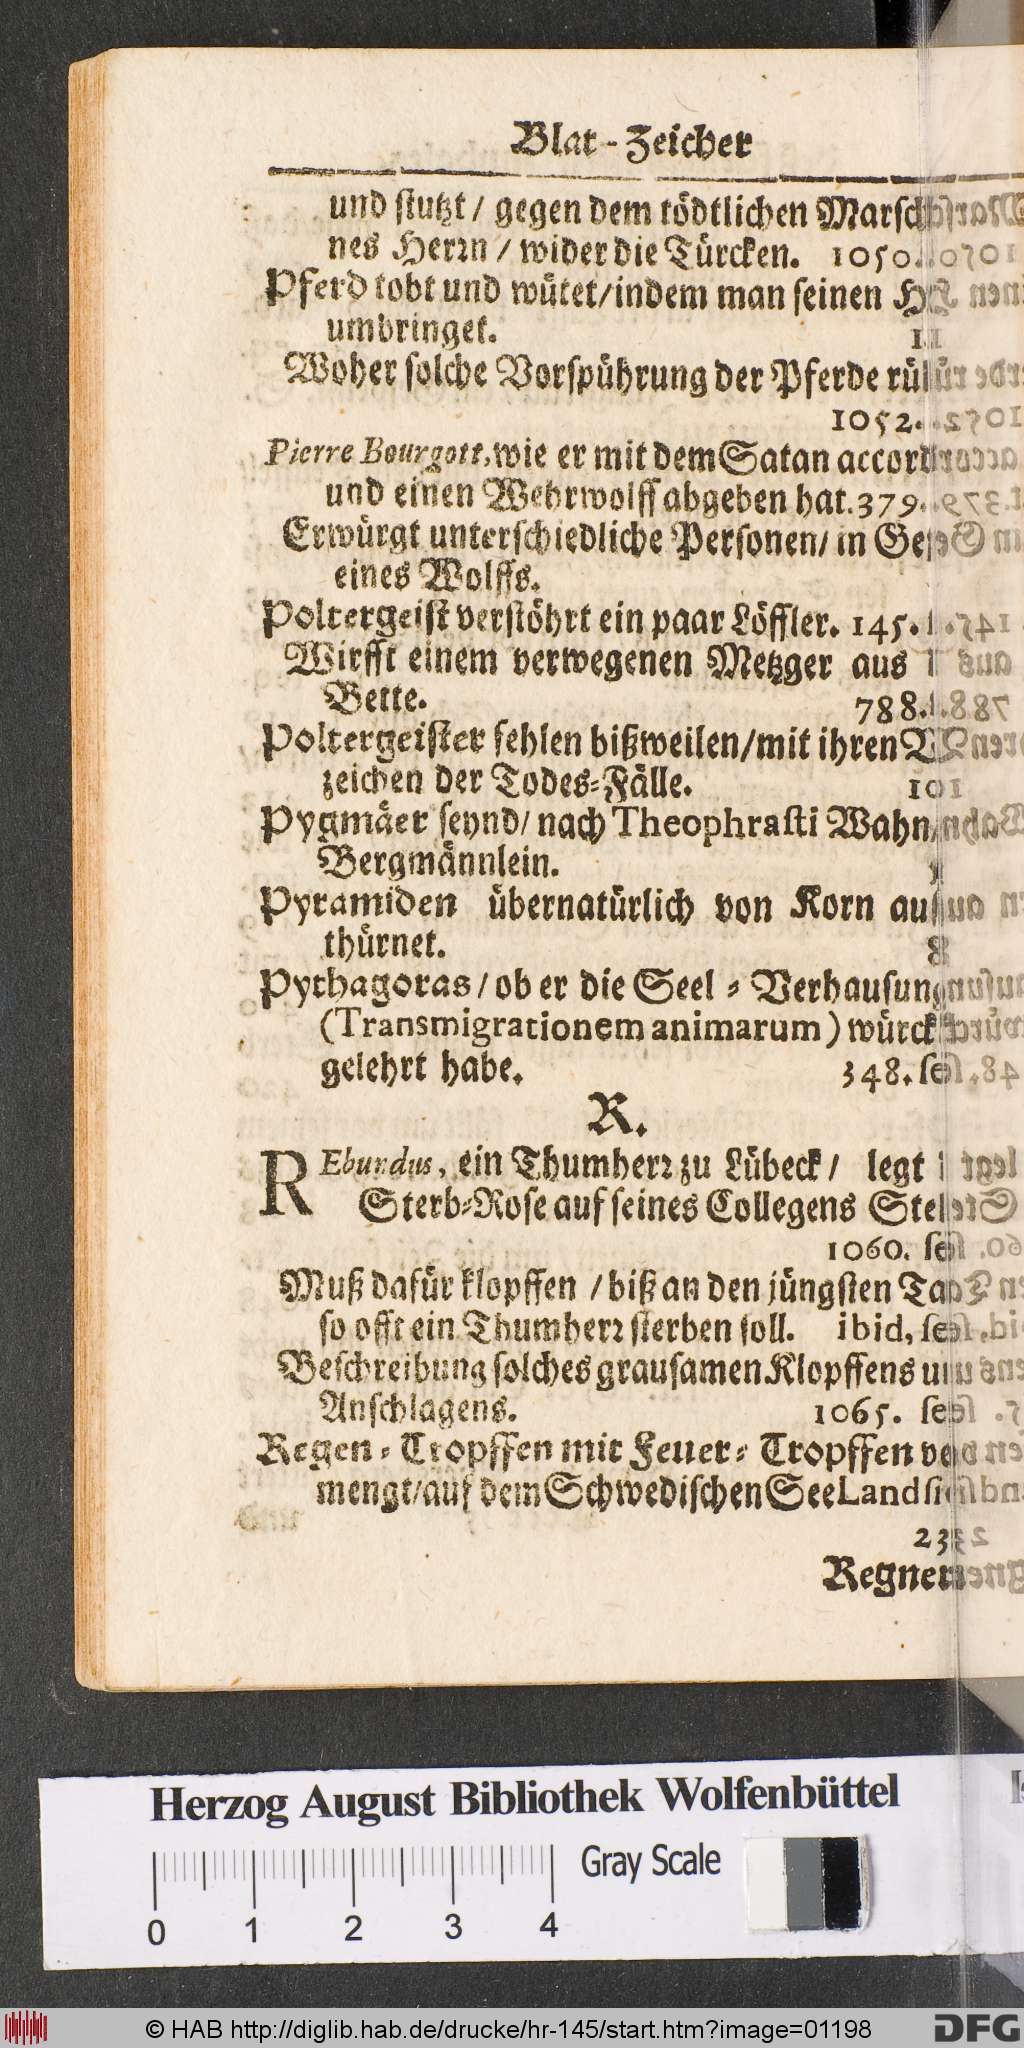 Blat-Zeicher
und stutzt / gegen dem tödtlichen Marsch
nes Herrn / wider die Türcken. 1050.
Pferd tobt und wütet/indem man seinen
umbringet.
Woher solche Vorspührung der Pferde
1052.
Pierre Bourgott, wie er mit dem Satan accord
und einen Wehrwolff abgeben hat. 379.
Erwürgt unterschiedliche Personen/ in
eines Wolffs.
Poltergeist verstöhrt ein paar Löffler. 145.
Wirfft einem verwegenen Metzger aus
Bette. 788.
Poltergeister fehlen bißweilen/mit ihren
zeichen der Todes-Fälle. 101
Pygmäer seynd/ nach Theophrasti Wahn
Bergmännlein.
Pyramiden übernatürlich von Korn
thürnet.
Pythagoras / ob er die Seel - Verhausung
(Transmigrationem animarum) würck
gelehrt habe. 348. se
R.
REbundus, ein Thumherr zu Lübeck / legt
Sterb-Rose auf seines Collegens
1060. se
Muß dafür klopffen / biß an den jüngsten Tag
so offt ein Thumherr sterben soll. ibid, se
Beschreibung solches grausamen Klopffens
Anschlagens. 1065. se
Regen - Tropffen mit Feuer - Tropffen
mengt/auf dem Schwedischen See Land
23
Regner
Herzog August Bibliothek Wolfenbüttel
0 1 2 3 4 Gray Scale
© HAB http://diglib.hab.de/drucke/hr-145/start.htm?image=01198 DFG